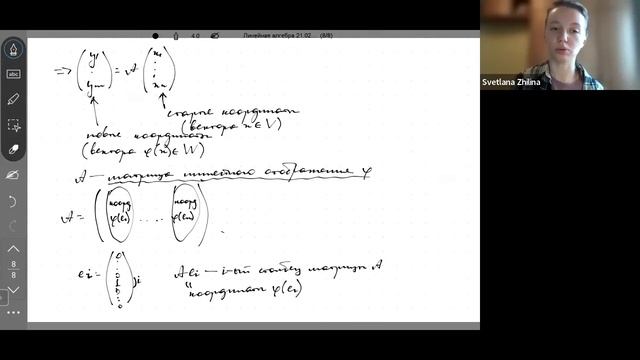 4.0 Линейная алгебра 21.02 (8/8)
Svetlana Zhilina
abc
=> (y₁ ⋮ yₘ) = A (x₁ ⋮ xₙ)
старые координаты
(вектора x ∈ V)
новые координаты
(вектора φ(x) ∈ W)
A — матрица линейного отображения φ
A = ( коорд φ(e₁) . . . . коорд φ(eₙ) )
eᵢ = (0 ⋮ 0 1 0 ⋮ 0) }i Aeᵢ — i-ый столбец матрицы A
"
координаты φ(eᵢ)
8
8